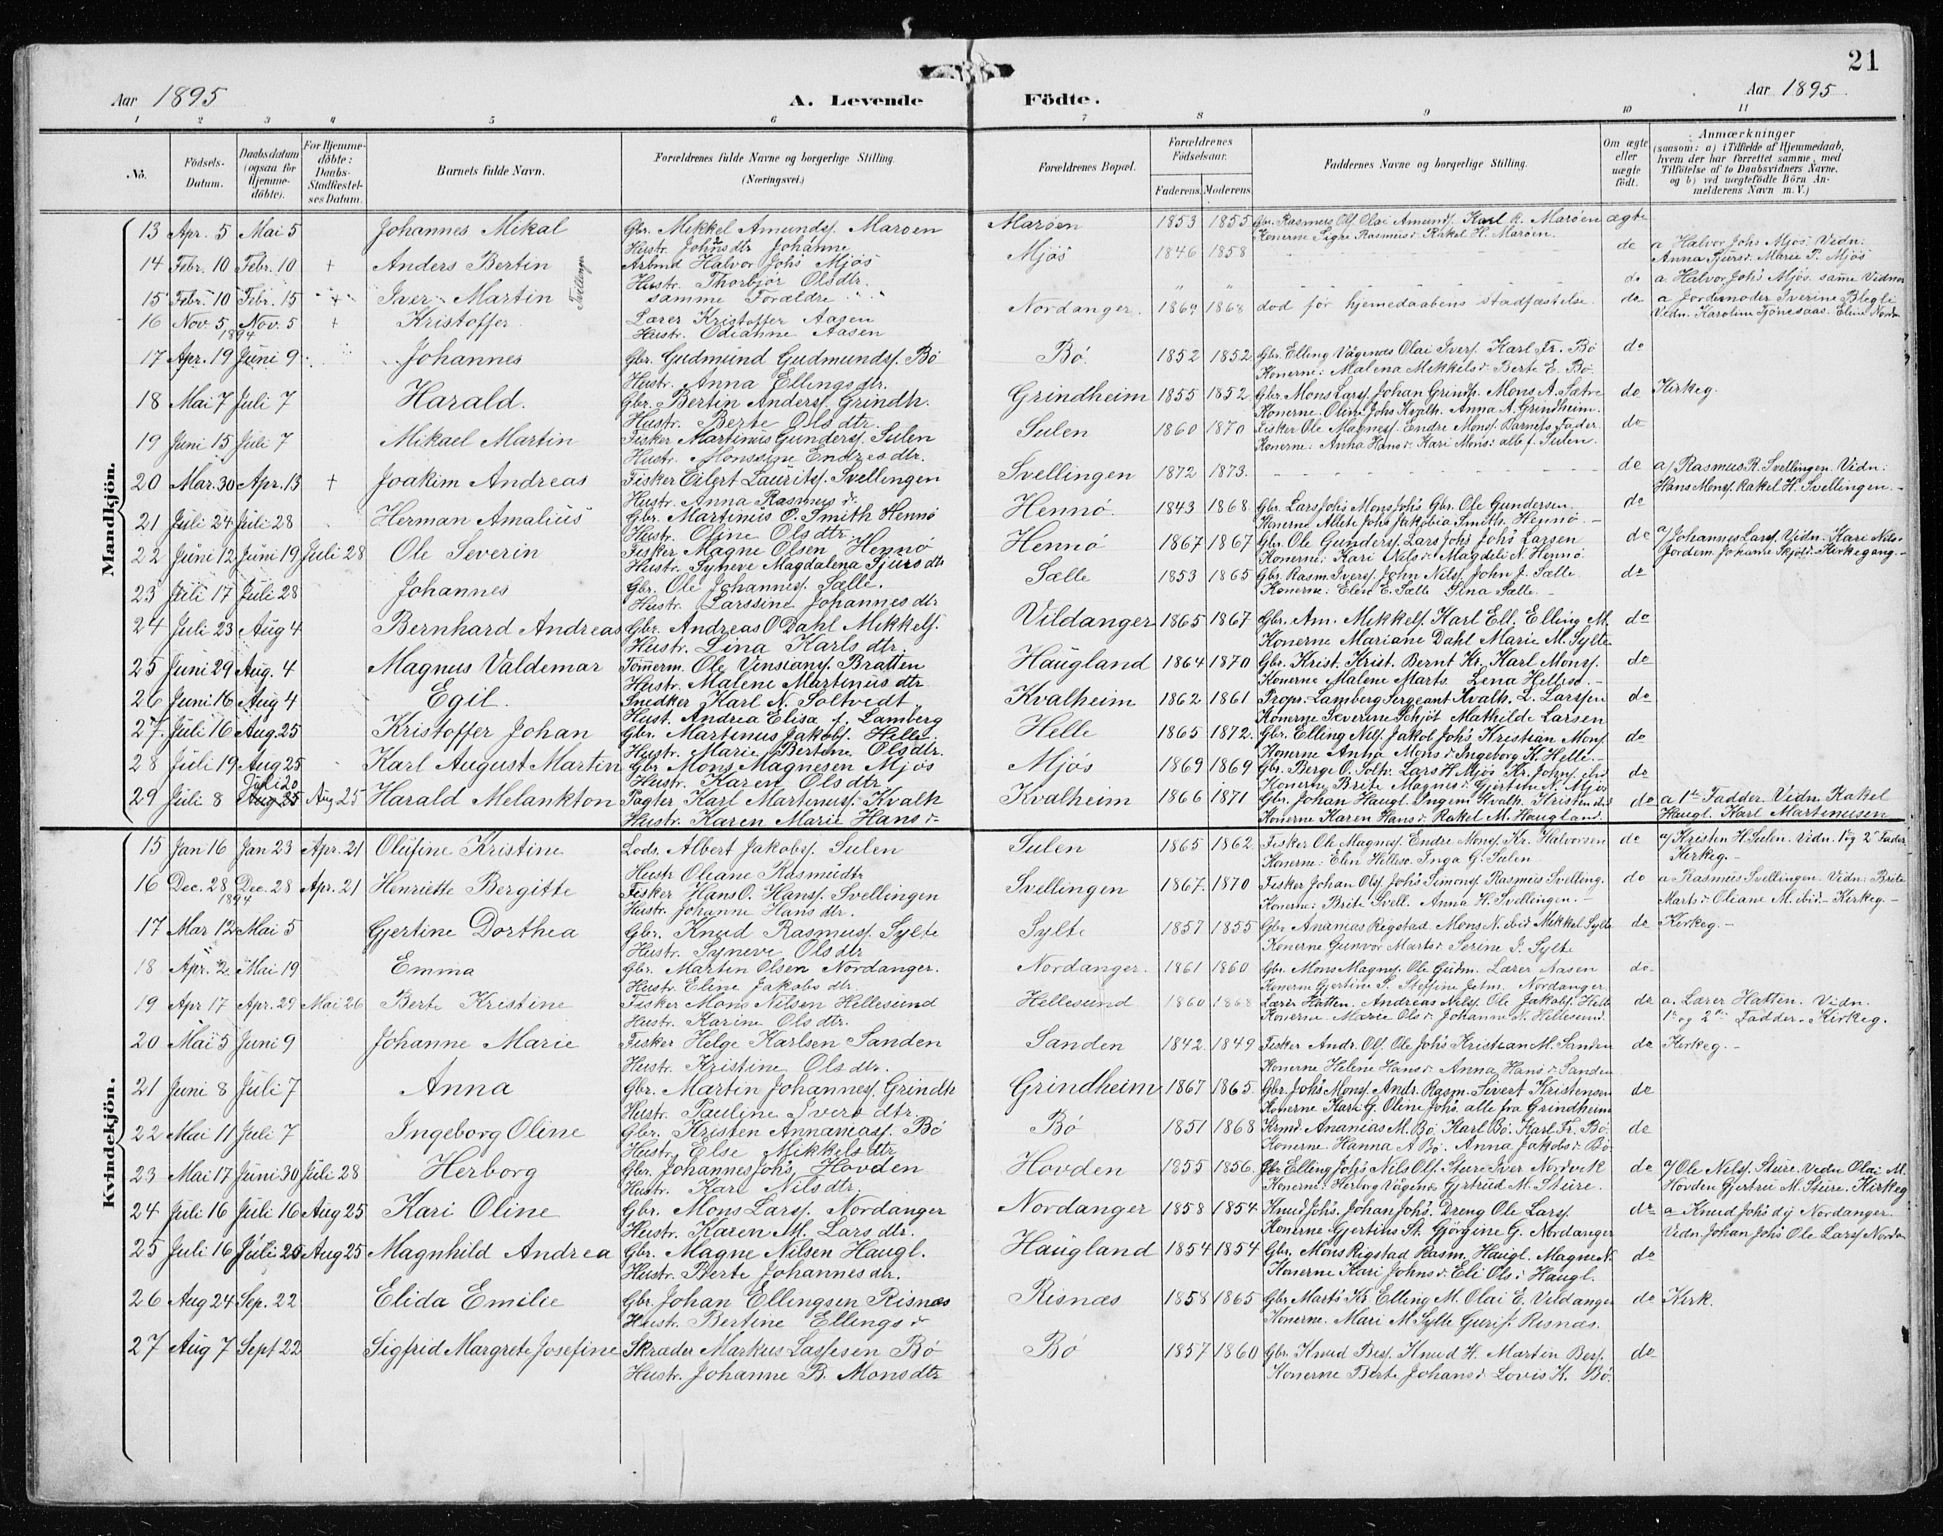 21
Aar 1895
A. Levende Födte.
Aar 1895.
1 2 3 4 5 6 7 8 9 10 11
No.
Födsels-Datum.
Daabsdatum (ogsaa for Hjemme-döbte).
For Hjemme-döbte: Daabs-Stadfæstel-ses Datum.
Barnets fulde Navn.
Forældrenes fulde Navne og borgerlige Stilling. (Næringsvei.)
Forældrenes Bopæl.
Forældrenes Födselsaar.
Faderens. Moderens.
Faddernes Navne og borgerlige Stilling.
Om ægte eller uægte födt.
Anmærkninger
(saasom: a) i Tilfælde af Hjemmedaab, hvem der har forrettet samme, med Tilföielse af to Daabsvidners Navne, og b) ved uægtefödte Börn An-melderens Navn m. V.)
Mandkjön.
13 Apr. 5 Mai 5 Johannes Mikal Gbr. Mikkel Amunds. Marøen Marøen 1853 1855 Gbr. Rasmus Ols. Olai Amunds. Karl R. Marøen ægte
Hustr. Johs dtr Johanne Konerne Sigre Rasmusd. Rakel H. Marøen.
14 Febr. 10 Febr. 10 + Anders Bertin Tvillinger Arbmd Halvor Johs Mjøs Mjøs 1846 1858 do a Halvor Johs Mjøs. Vidn:
Hustr. Thorbjør Olsdtr. Anna Sjursd. Marie P. Mjøs
15 Febr. 10 Febr. 15 + Iver Martin samme Forældre do a Halvor Johs Mjøs. samme Vidner
16 Nov. 5 1894 Nov. 5 + Kristoffer Lærer Kristoffer Aasen Nordanger. 1869 1868 død før hjemedaabens stadfæstelse. do a Jordemoder Iverine Blegti
Hustr. Odianne Aasen Vidn. Karoline Tjønesaas. Eline Nordan
17 Apr. 19 Juni 9 Johannes Gbr. Gudmund Gudmunds. Bø Bø 1852 1852 Gbr. Elling Vågenes Olai Ivers. Karl Fr. Bø do
Hustr. Anna Ellingsdtr. Konerne: Malena Mikkelsd. Berte E. Bø.
18 Mai 7 Juli 7 Harald. Gbr. Bertin Anders. Grindh. Grindheim 1855 1852 Gbr. Mons Lars. Johan Grindh. Mons A. Sætre do Kirkeg.
Hustr. Berte Olsdtr. Konerne. Oline Johs Kvalh. Anna A. Grindheim.
19 Juni 15 Juli 7 Mikael Martin Fisker Martinus Gunders. Sulen Sulen 1860 1870 Fisker Ole Magnes. Endre Mons. Barnets Fader. do
Hustr. Monssine Endresdtr. Konerne: Anna Hansd. Kari Mons: alle f. Sulen.
20 Mar. 30 Apr. 13 + Joakim Andreas Fisker Eilert Laurits. Svellingen Svellingen 1872 1873. do a/ Rasmus R. Svellingen. Vidn:
Hustr. Anna Rasmusd. Hans Mons. Rakel H. Svellingen.
21 Juli 24 Juli 28 Herman Amalius Gbr. Martinus O. Smith Hennø Hennø 1843 1868 Gbr. Lars Johs Mons Johs Gbr. Ole Gundersen do
Hustr. Oline Olsdtr. Konerne Allete Johs Jakobia Smith. Hennø.
22 Juni 12 Juni 19 Juli 28 Ole Severin Fisker Magne Olsen Hennø Hennø 1867 1867 Gbr. Ole Gunders. Lars Johs Johs Larsen do a/ Johannes Lars. Vidn. Kari Nils
Hustr. Syneve Magdalena Sjursdtr Konerne: Kari Nilsd. Magdeli N. Hennø Jordem. Johanne Skjøl. Kirkegang.
23 Juli 17 Juli 28 Johannes Gbr. Ole Johannes. Sælle. Sælle 1853 1865 Gbr. Rasm. Ivers. John Nils. John J. Sælle do
Hustr. Larssine Johannesdtr Konerne: Elen E. Sælle Sina Sælle.
24 Juli 23 Aug 4 Bernhard Andreas Gbr. Andreas O Dahl Mikkels. Vildanger 1865 1867 Gbr. Am. Mikkels. Karl Ell. Elling M. do
Hustr. Lina Karlsdtr. Konerne Mariane Dahl Marie M. Sylte
25 Juni 29 Aug. 4 Magnus Valdemar Tømerm. Ole Vinsians. Bratten Haugland 1864 1870 Gbr. Krist. Krist. Bernt Kr. Karl Mons. do
Hustr. Malene Martinusdtr Konerne Malene Marts Lena Hellesø.
26 Juni 16 Aug 4 Egil. Snedker Karl N. Soltvedt Kvalheim 1862 1861 Propr. Lamberg Sergeant Kvalh. L. Larssen do
Hust. Andrea Elisa f. Lamberg Konerne Severine Schjøt Mathilde Larsen
27. Juli 16 Aug. 25 Kristoffer Johan Gbr. Martinus Jakobs. Helle. Helle 1865 1872. Gbr. Elling Nils. Jakob Johs Kristian Mons. do
Hustr. Marie Bertine Olsdtr. Konerne Anna Monsd. Ingeborg K. Helle.
28 Juli 19 Aug 25 Karl August Martin Gbr Mons Magnesen Mjøs Mjøs 1869 1869 Gbr. Berge O. Soltv. Lars H Mjøs Kr. Johns. do
Hustr. Karen Olsdtr. Konerne Brite Magnesd. Gjertine N. Mjøs
29 Juli 8 Juli 20 Aug 25 Aug 25 Harald Melankton Pagter Karl Martinus. Kvalh Kvalheim 1866 1871 Gbr. Johan Haugl. Ingem. Kvalh. Kristen do a 1ste Fadder. Vidn. Rakel
Hustr. Karen Marie Hansd. Konerne Karen Hansd. Rakel M. Haugland. Haugl. Karl Martinusen
Kvindekjön.
15 Jan 16 Jan 23 Apr. 21 Olufine Kristine Lods. Albert Jakobs. Sulen Sulen 1865 1862 Fisker Ole Magnes. Endre Mons. Kr. Halvorsen do a/ Kristen H. Sulen. Vidn. 1ste og 2den Fadder
Hustr Oliane Rasmusdtr Konerne: Elen Hellesø. Inga G. Sulen Kirkeg.
16 Dec. 28 1894 Dec. 28 Apr. 21 Henriette Bergitte Fisker Hans O. Hans. Svellingen Svellingen 1867. 1870 Fisker Johan Ols. Johs Simons. Rasmus Svelling. do a Rasmus Svellingen. Vidn: Brite
Hustr. Johanne Hansdtr. Konerne: Brite Svell. Anna H. Svellingen. Martsd. Oliane M. ibid. Kirkeg.
17 Mar 12 Mai 5 Gjertine Dorthea Gbr. Knud Rasmus. Sylte Sylte 1857 1855 Gbr Ananias Rigstad. Mons N. ibid Mikkel Sylte do Kirkeg.
Hustr. Syneve Olsdtr Konerne Gunvor Martsd. Serine I. Sylte
18 Apr. 2. Mai 19 Emma Gbr. Martin Olsen Nordanger. Nordanger. 1861 1860 Gbr. Mons Magnes. Ole Gudm. Lærer Aasen do
Hustr. Eline Jakobsdtr. Konerne Gjertine S. Steffine John. Nordanger
19 Apr 17 Apr. 29 Mai 26 Berte Kristine Fisker Mons Nilsen Hellesund Hellesund 1860 1868 Lærer Hatten. Andreas Nils. Ole Jakobs. Helle do a. Lærer Hatten. Vidn.
Hustr. Karine Olsdtr. Konerne. Marie Olsd. Johanne N. Hellesund. 1ste og 2den Fadder. Kirkeg.
20 Mai 5 Juni 9 Johanne Marie Fisker Helge Karlsen Sanden Sanden 1842. 1849 Fisker Andr. Ols. Ole Johs Kristian M. Sanden do Kirkeg.
Hustr. Kristine Olsdtr. Konerne Helene Hansd. Anna Hansd. Sanden
21 Juni 8 Juli 7 Anna Gbr. Martin Johannes. Grindh Grindheim 1867 1865. Gbr. Johs Mons. Andr. Rasm. Sivert Kristensen do
Hustr. Pauline Ivers dtr. Konerne Kari G. Oline Johs. alle fra Grindheim
22 Mai 11 Juli 7 Ingeborg Oline Gbr. Kristen Annanias. Bø Bø 1851 1868 Krmd Ananias M. Bø. Karl Bø. Karl Fr. Bø do
Hustr. Else Mikkelsdtr Konerne. Hanna A Bø. Anna Jakobsd. Bø
23 Mai 17 Juni 30 Juli 28 Herborg Gbr. Johannes Johs Hovden Hovden 1855 1856. Gbr Elling Johs Nils Ols. Sture Iver Nordvik do a/ Ole Nils. Sture. Vidn Olai M.
Hustr. Kari Nilsdtr. Konerne: Herborg Vågenes Gjertrud M. Sture. Hovden Gjertru M. Sture. Kirkeg
24 Juli 16 Juli 16 Aug 25 Kari Oline Gbr. Mons Lars. Nordanger Nordanger 1858 1854 Knud Johs. Johan Johs. Dreng Ole Lars. do a Knud Johs dy Nordanger
Hustr. Karen M. Larsdtr. Konerne Gjertine St. Gjørgine G. Nordanger Vidn. Johan Johs Ole Lars Nordan
25 Juli 16 Juli 25 Aug 25 Magnhild Andrea Gbr. Magne Nilsen Haugl. Haugland 1854 1854 Gbr. Mons Rigstad Rasm. Haugl. Magne N. do
Hustr. Berte Johannesdtr. Konerne Kari Johnsd. Eli Olsd. Haugl.
26 Aug 24 Sep. 22 Elida Emilie Gbr. Johan Ellingsen Risnæs Risnæs 1858 1865 Gbr Marts Kr. Elling M. Olai E. Vildanger do Kirk.
Hustr. Bertine Ellingsd Konerne. Mari M Sylte Guris. Risnæs.
27 Aug 7 Sept 22 Sigfrid Margrete Josefine Skræder Markus Lassesen Bø Bø 1857 1860 Gbr. Knud Bers. Knud H. Martin Bers. do
Hustr. Johanne B. Monsdtr Konerne Berte Johansd. Lovis K. Bø.